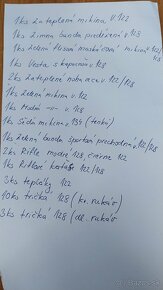 1ks zateplená mikina v. 122
1ks zimná bunda predĺžená v. 128
1ks zelená flísová mikina v. 122/128
1ks Vesta s kapucňou v. 128
2ks zateplené nohavice v. 122/128
1ks zelená mikina v. 122
1ks Modrá -"- v. 128
1ks Sivá mikina v. 134 (tenká)
1ks zelená bunda športová prechodná v. 128
2ks Rifle modré 128, čierne 122
1ks Rifľové kraťase 122/128
3ks tepláky 122
10ks tričká 128 (kr. rukáv)
3ks tričká 128 (dl. rukáv)